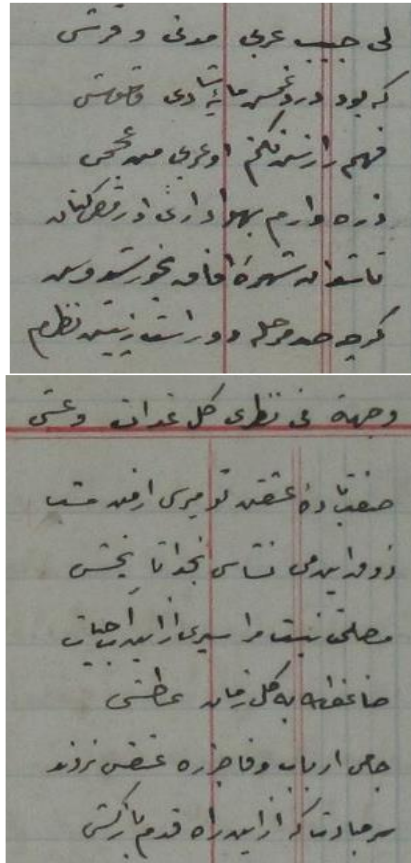 لی حبیب عربی مدنی و قرشی
که بود درد غمش مایهٔ شادی و خوشی
فهم رازش نکنم او عربی من عجمی
ذره وارم بهواداری او رقص کنان
تا شد او شهرهٔ آفاق بخورشید وش
گرچه صد مرحله دور است ز پیش نظرم
وجهه فی نظری کل غداة وعشی
صفت بادهٔ عشقش تو مپرس از من مست
ذوق این می نشناسی بخدا تا نچشی
مصلحت نیست مرا سیری از این آب حیات
ضاعف الله به کل زمان عطشی
جامی ارباب وفا جز ره عشقش نروند
سر مبادت گر از این راه قدم بازکشی